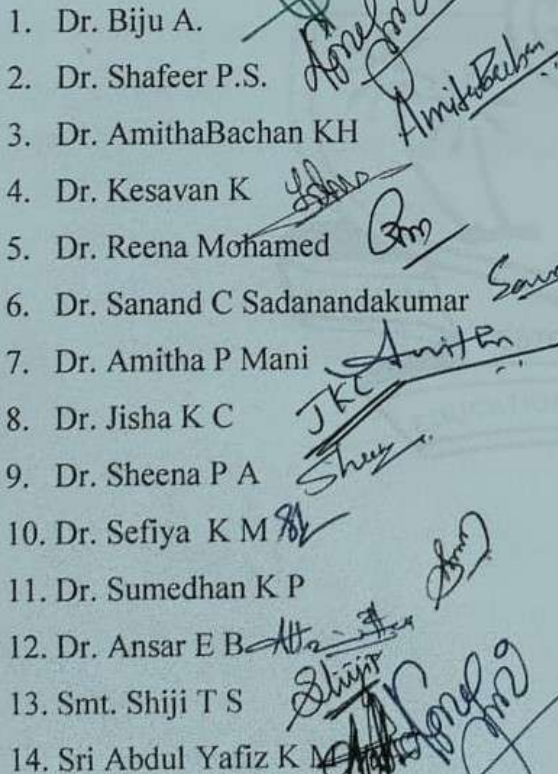 1. Dr. Biju A.
2. Dr. Shafeer P.S.
3. Dr. AmithaBachan KH AmithaBachan
4. Dr. Kesavan K
5. Dr. Reena Mohamed
6. Dr. Sanand C Sadanandakumar
7. Dr. Amitha P Mani
8. Dr. Jisha K C JKC
9. Dr. Sheena P A
10. Dr. Sefiya K M
11. Dr. Sumedhan K P
12. Dr. Ansar E B
13. Smt. Shiji T S
14. Sri Abdul Yafiz K M